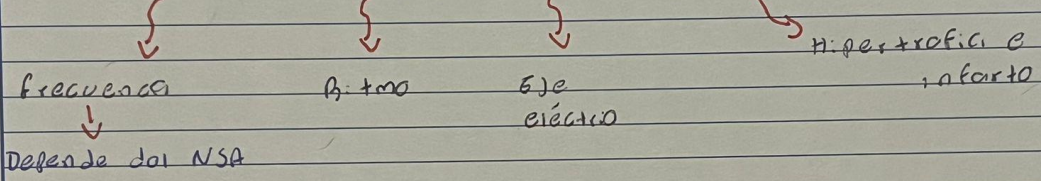 Hipertrofia e
infarto
frecuencia
Ritmo
Eje
eléctrico
Depende del NSA